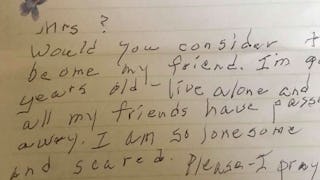 Mrs ?
Would you consider
become my friend. I'm
years old - live alone and
all my friends have
away. I am so lonesome
and scared. Please - I pray